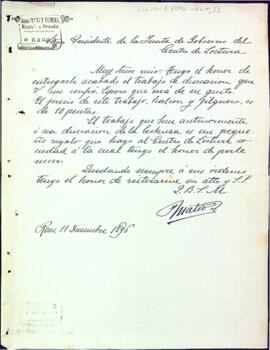 Presidente de la Junta de Gobierno del
Centro de Lectura
Muy Señor mio: Tengo el honor de
entregarle acabado el trabajo de disecacion que
V. me confió. Espero que será de su gusto.
El precio de este trabajo, halcon y gilguero, es
de 10 pesetas.
El trabajo que hice anteriormente
ó sea disecacion de la lechuza es un peque-
ño regalo que hago al Centro de Lectura so-
ciedad á la cual tengo el honor de perte-
necer.
Quedando siempre á sus órdenes
tengo el honor de reiterarme su atto y S.S.
Q. B. S. M.
Mateo
Reus 11 Diciembre 1896